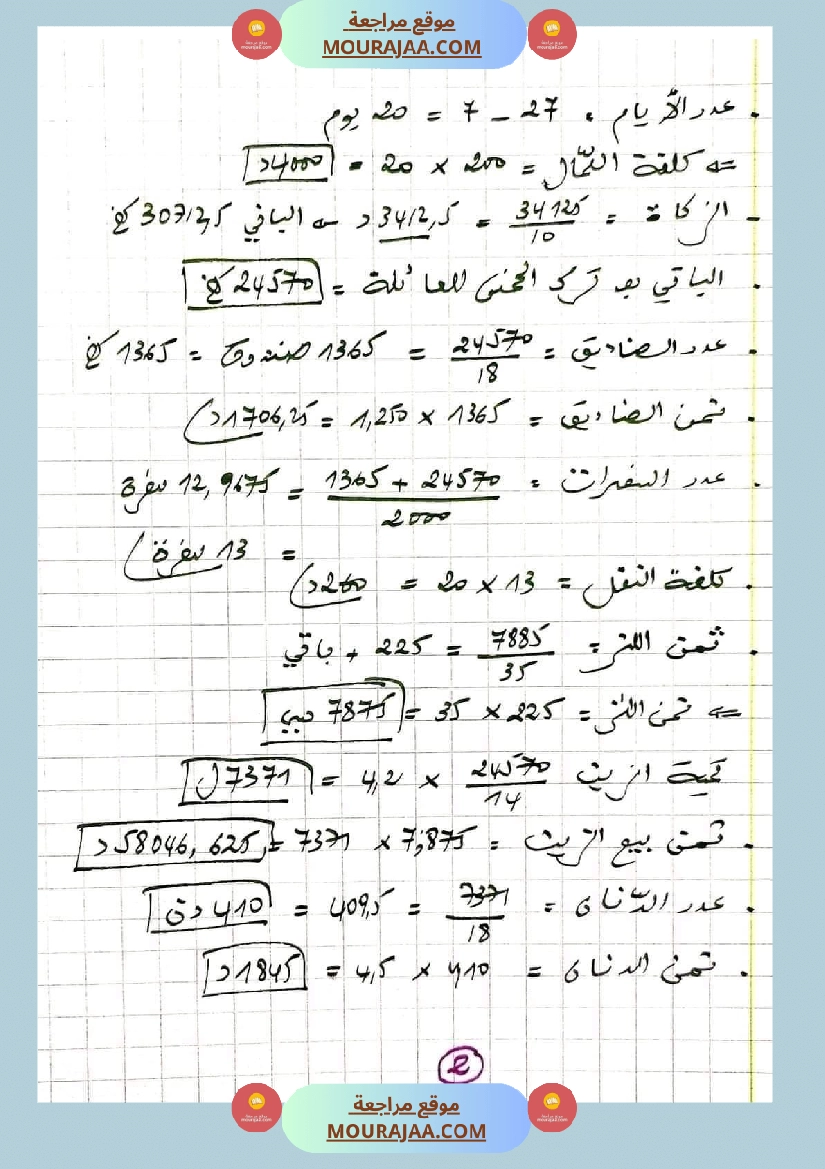 موقع مراجعة
MOURAJAA.COM
. عدد الأيام : 27 - 7 = 20 يوم
⇐ كلفة العمّال = 200 × 20 = 4000د
- الزكاة = 34125/10 = 3412,5 د ⇐ الباقي 30712,5 كغ
. الباقي بعد ترك الخمس للعائلة = 24570 كغ
. عدد الصناديق = 24570/18 = 1365 صندوق = 1365 كغ
. ثمن الصناديق = 1365 × 1,250 = 1706,25د
. عدد السفرات = 24570 + 1365/2000 = 12,9675 سفرة
= 13 سفرة
. كلفة النقل = 13 × 20 = 260د
. ثمن اللتر = 7885/35 = 225 + باقي
⇐ ثمن اللتر = 225 × 35 = 7875 مي
كمية الزيت 24570/14 × 4,2 = 7371ل
. ثمن بيع الزيت = 7,875 × 7371 = 58046,625 د
. عدد الدّنان = 7371/18 = 409,5 = 410 دن
. ثمن الدنان = 410 × 4,5 = 1845د
2
موقع مراجعة
MOURAJAA.COM